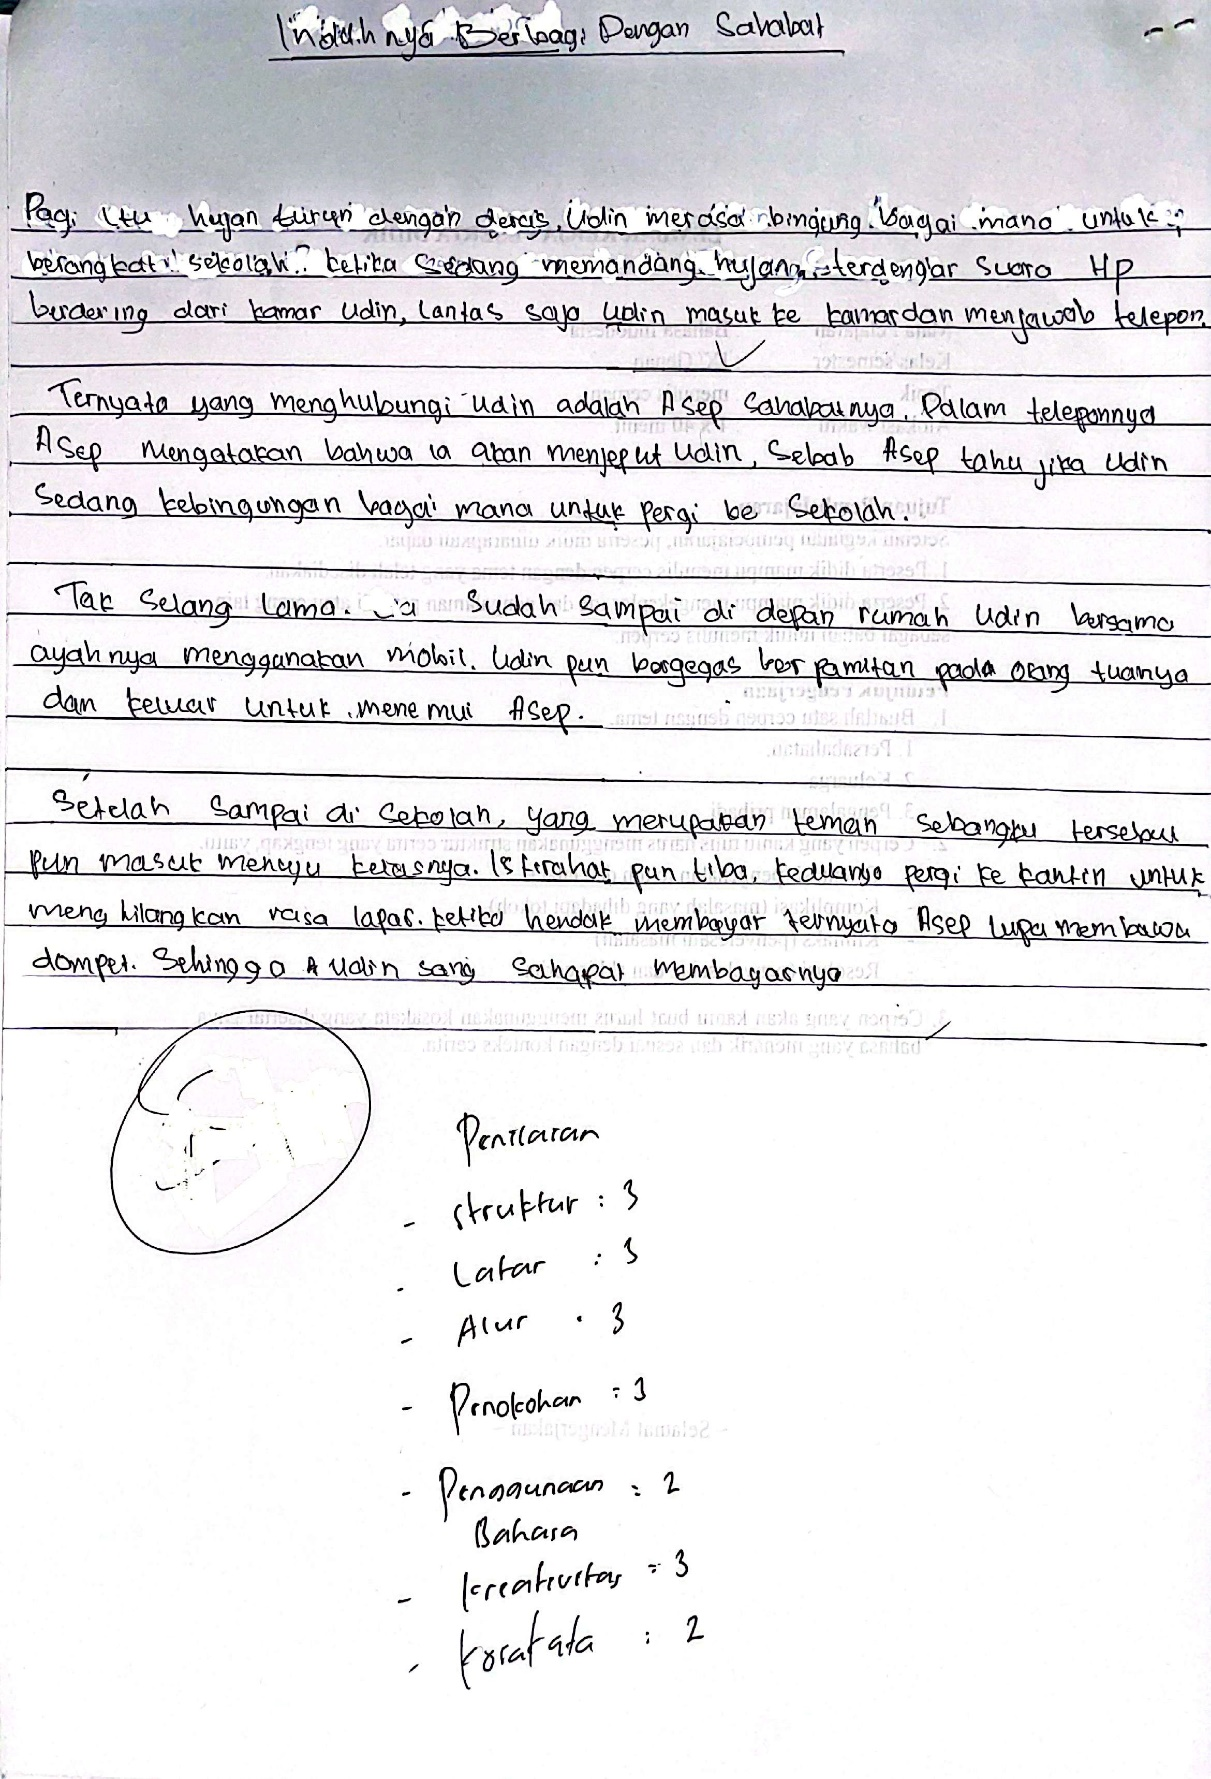 Indahnya Berbagi Dengan Sahabat
Pagi itu hujan turun dengan deras, Udin merasa bingung bagai mana untuk
berangkat sekolah? ketika sedang memandang hujan, terdengar suara HP
berdering dari kamar Udin, Lantas saja Udin masuk ke kamar dan menjawab telepon.
Ternyata yang menghubungi Udin adalah Asep Sahabatnya. Dalam teleponnya
Asep mengatakan bahwa ia akan menjeput Udin, Sebab Asep tahu jika Udin
Sedang kebingungan bagai mana untuk pergi ke Sekolah.
Tak Selang Lama. Sudah Sampai di depan rumah Udin bersama
ayahnya menggunakan mobil. Udin pun bergegas ber pamitan pada orang tuanya
dan keluar untuk menemui Asep.
Setelah Sampai di Sekolah, yang merupakan teman sebangku tersebut
pun masuk menuju kelasnya. Istirahat pun tiba, keduanya pergi ke kantin untuk
meng hilangkan rasa lapar. ketika hendak membayar ternyata Asep lupa membawa
dompet. Sehingga Udin sang Sahapat membayarnya
Penilaian
- Struktur : 3
- Latar : 3
- Alur : 3
- Penokohan : 3
- Penggunaan : 2
Bahasa
- kreativitas = 3
- kosakata : 2